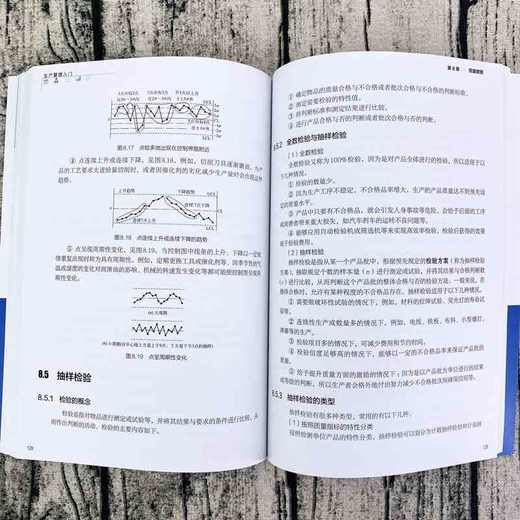 生产管理入门
图8.17 点较多地出现在控制界限附近
④ 点连续上升或连续下降。见图8.18，例如，切削刀具逐渐磨损，为产
品的工艺要求大进给量切削时，或者因催化剂的劣化减少生产量时会出现这种
趋势。
上升趋势
下降趋势
图8.18 点连续上升或连续下降的趋势
⑤ 点呈现周期性变化。见图8.19，当控制图中线条的上升、下降以一定规
律重复出现时称为具有周期性。例如，定期更换工具或催化剂等，因季节性的气
温或湿度的变化对润滑油的影响、机械的转速发生变化等都可能使控制图呈现周
期性变化。
(a) 大周期
图8.19 点呈周期性变化
8.5 抽样检验
8.5.1 检验的概念
检验是指对物品进行测定或试验等，并将其结果与要求的条件进行比较，从
而作出判断的活动。检验的主要内容如下。
128
第8章
① 确定物品的质量合格与不合格或者批次合格与不合格的判断标准。
② 测定需要检验的特性值。
③ 将判断标准和测定结果进行比较。
④ 进行产品合格与否或者批次合格与否的判断。
8.5.2 全数检验与抽样检验
（1）全数检验
全数检验又称为100%检验，因为是对产品全体进行的检验，所以适用于以
下几种情况。
① 检验的数量少。
② 因为生产工序不稳定、不合格品率增大，生产的产品质量达不到预先规定
的质量水平。
③ 产品中只要有不合格，就会引发人身事故等危险，会给予后续的工序或
消费者带来重大损失，如汽车刹车的运转不良等情况。
④ 能够应用自动检验机或筛选机等来实现高效率检验，检验后获得的效果
比检验费用高。
（2）抽样检验
抽样检验是指从某一个产品批中，根据预先规定的检验方案（称为抽样方
案），抽取规定个数的样本量（n）进行测定或试验，并将其结果与合格判断
从而对这个产品批的整体合格与否的检验方法。一般来说，在
整体合格时，允许有某种程度的不合格品存在。抽样检验适用于以下几种情况。
① 需要做破坏性试验的情况下，例如，材料的拉伸试验、荧光灯的寿命试
验等。
② 连续性生产或数量多的情况下，例如，电线、铁板、布料、小型螺钉、
弹簧等的生产。
③ 检验项目多的情况下，可减少费用和节约时间。
④ 检验信度足够高的情况下，能够以一定的不合格品率来保证产品批的
质量。
⑤ 给予提升质量方面的激励的情况下；因为是以产品批为单位进行的结果
或等级的判断，所以生产者会格外地付出努力减少不合格批次而赚得信赖。
8.5.3 抽样检验的类型
抽样检验有很多种类型，常用的有以下几种。
（1）按照质量指标的特性分类
按照检测单位产品的特性分类，抽样检验可以划分为计数抽样检验和计量抽
129